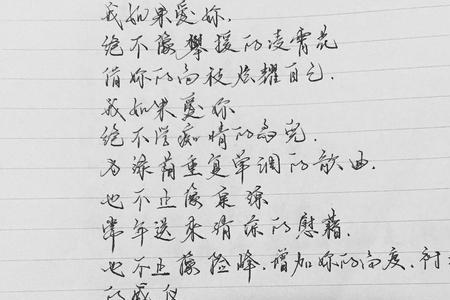 我如果愛妳.
绝不像攀援的凌霄花
借妳的高枝炫耀自己.
我如果愛妳
绝不学痴情的鸟兒.
为绿荫重复单调的歌曲.
也不止像泉源
常年送來清凉的慰藉.
也不止像险峰.增加妳的高度.衬
的威仪